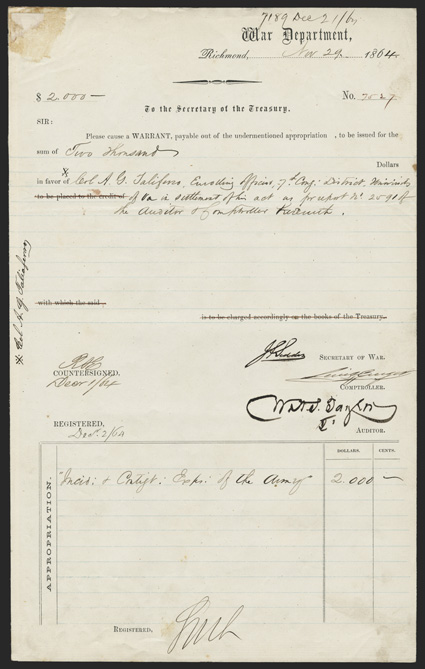 7189 Dec 21/64
War Department,
Richmond, Nov 29 1864
$ 2.000 — No. 7527
To the Secretary of the Treasury.
SIR:
Please cause a WARRANT, payable out of the undermentioned appropriation , to be issued for the
sum of Two thousand
Dollars
in favor of Col A. G. Taliferro, Enrolling officer, 7th Cong: District,
to be placed to the credit of Va in settlement of his act as pr report No 2590 of
the Auditor & Comptroller herewith.
x Col A. G. Taliaferro
with which the said ,
is to be charged accordingly on the books of the Treasury.
SECRETARY OF WAR.
COUNTERSIGNED.
Decr 1/64
COMPTROLLER.
W. S. Taylor
AUDITOR.
REGISTERED,
Dec. 2/64
DOLLARS. CENTS.
APPROPRIATION.
"Incid: & Contigt: Exps: of the Army" 2.000 —
REGISTERED.